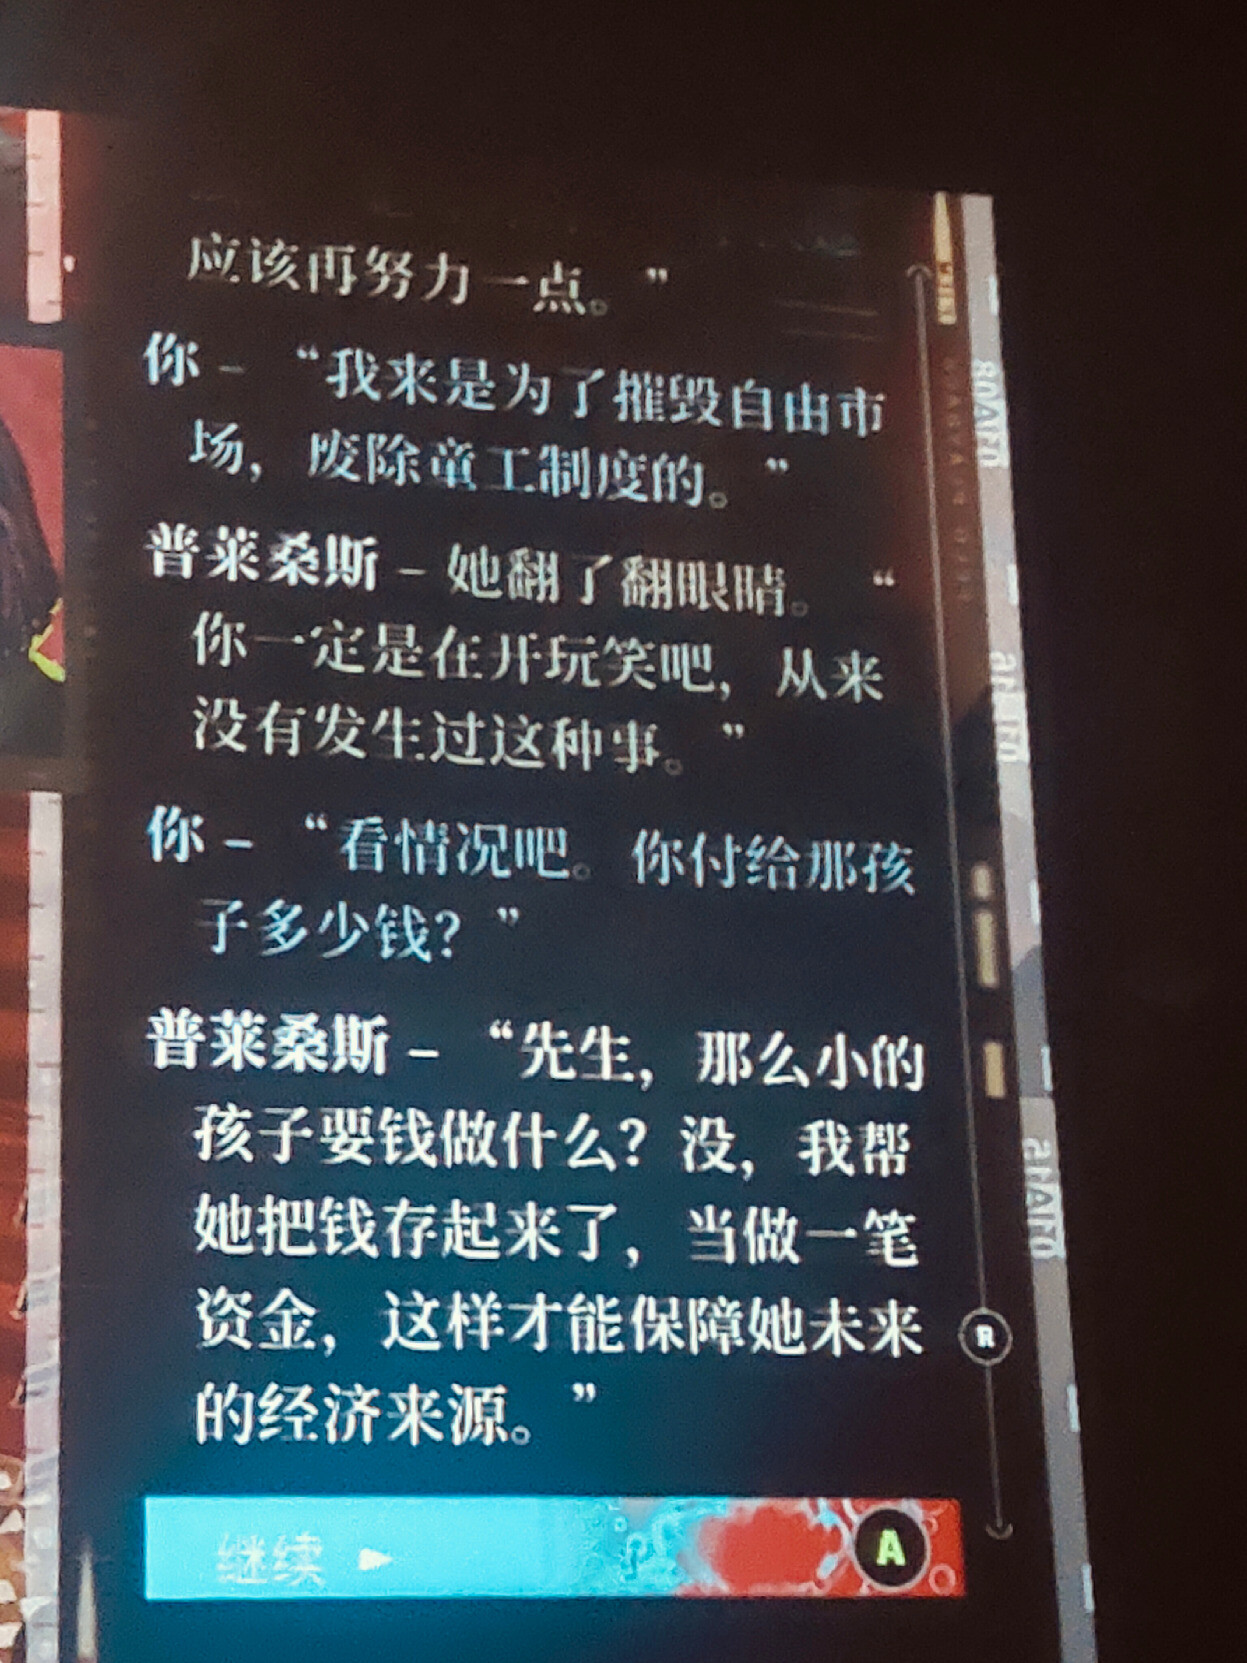 应该再努力一点。”
你 – “我来是为了摧毁自由市
场，废除童工制度的。”
普莱桑斯 – 她翻了翻眼睛。“
你一定是在开玩笑吧，从来
没有发生过这种事。”
你 – “看情况吧。你付给那孩
子多少钱？”
普莱桑斯 – “先生，那么小的
孩子要钱做什么？没，我帮
她把钱存起来了，当做一笔
资金，这样才能保障她未来
的经济来源。”
R
继续
A